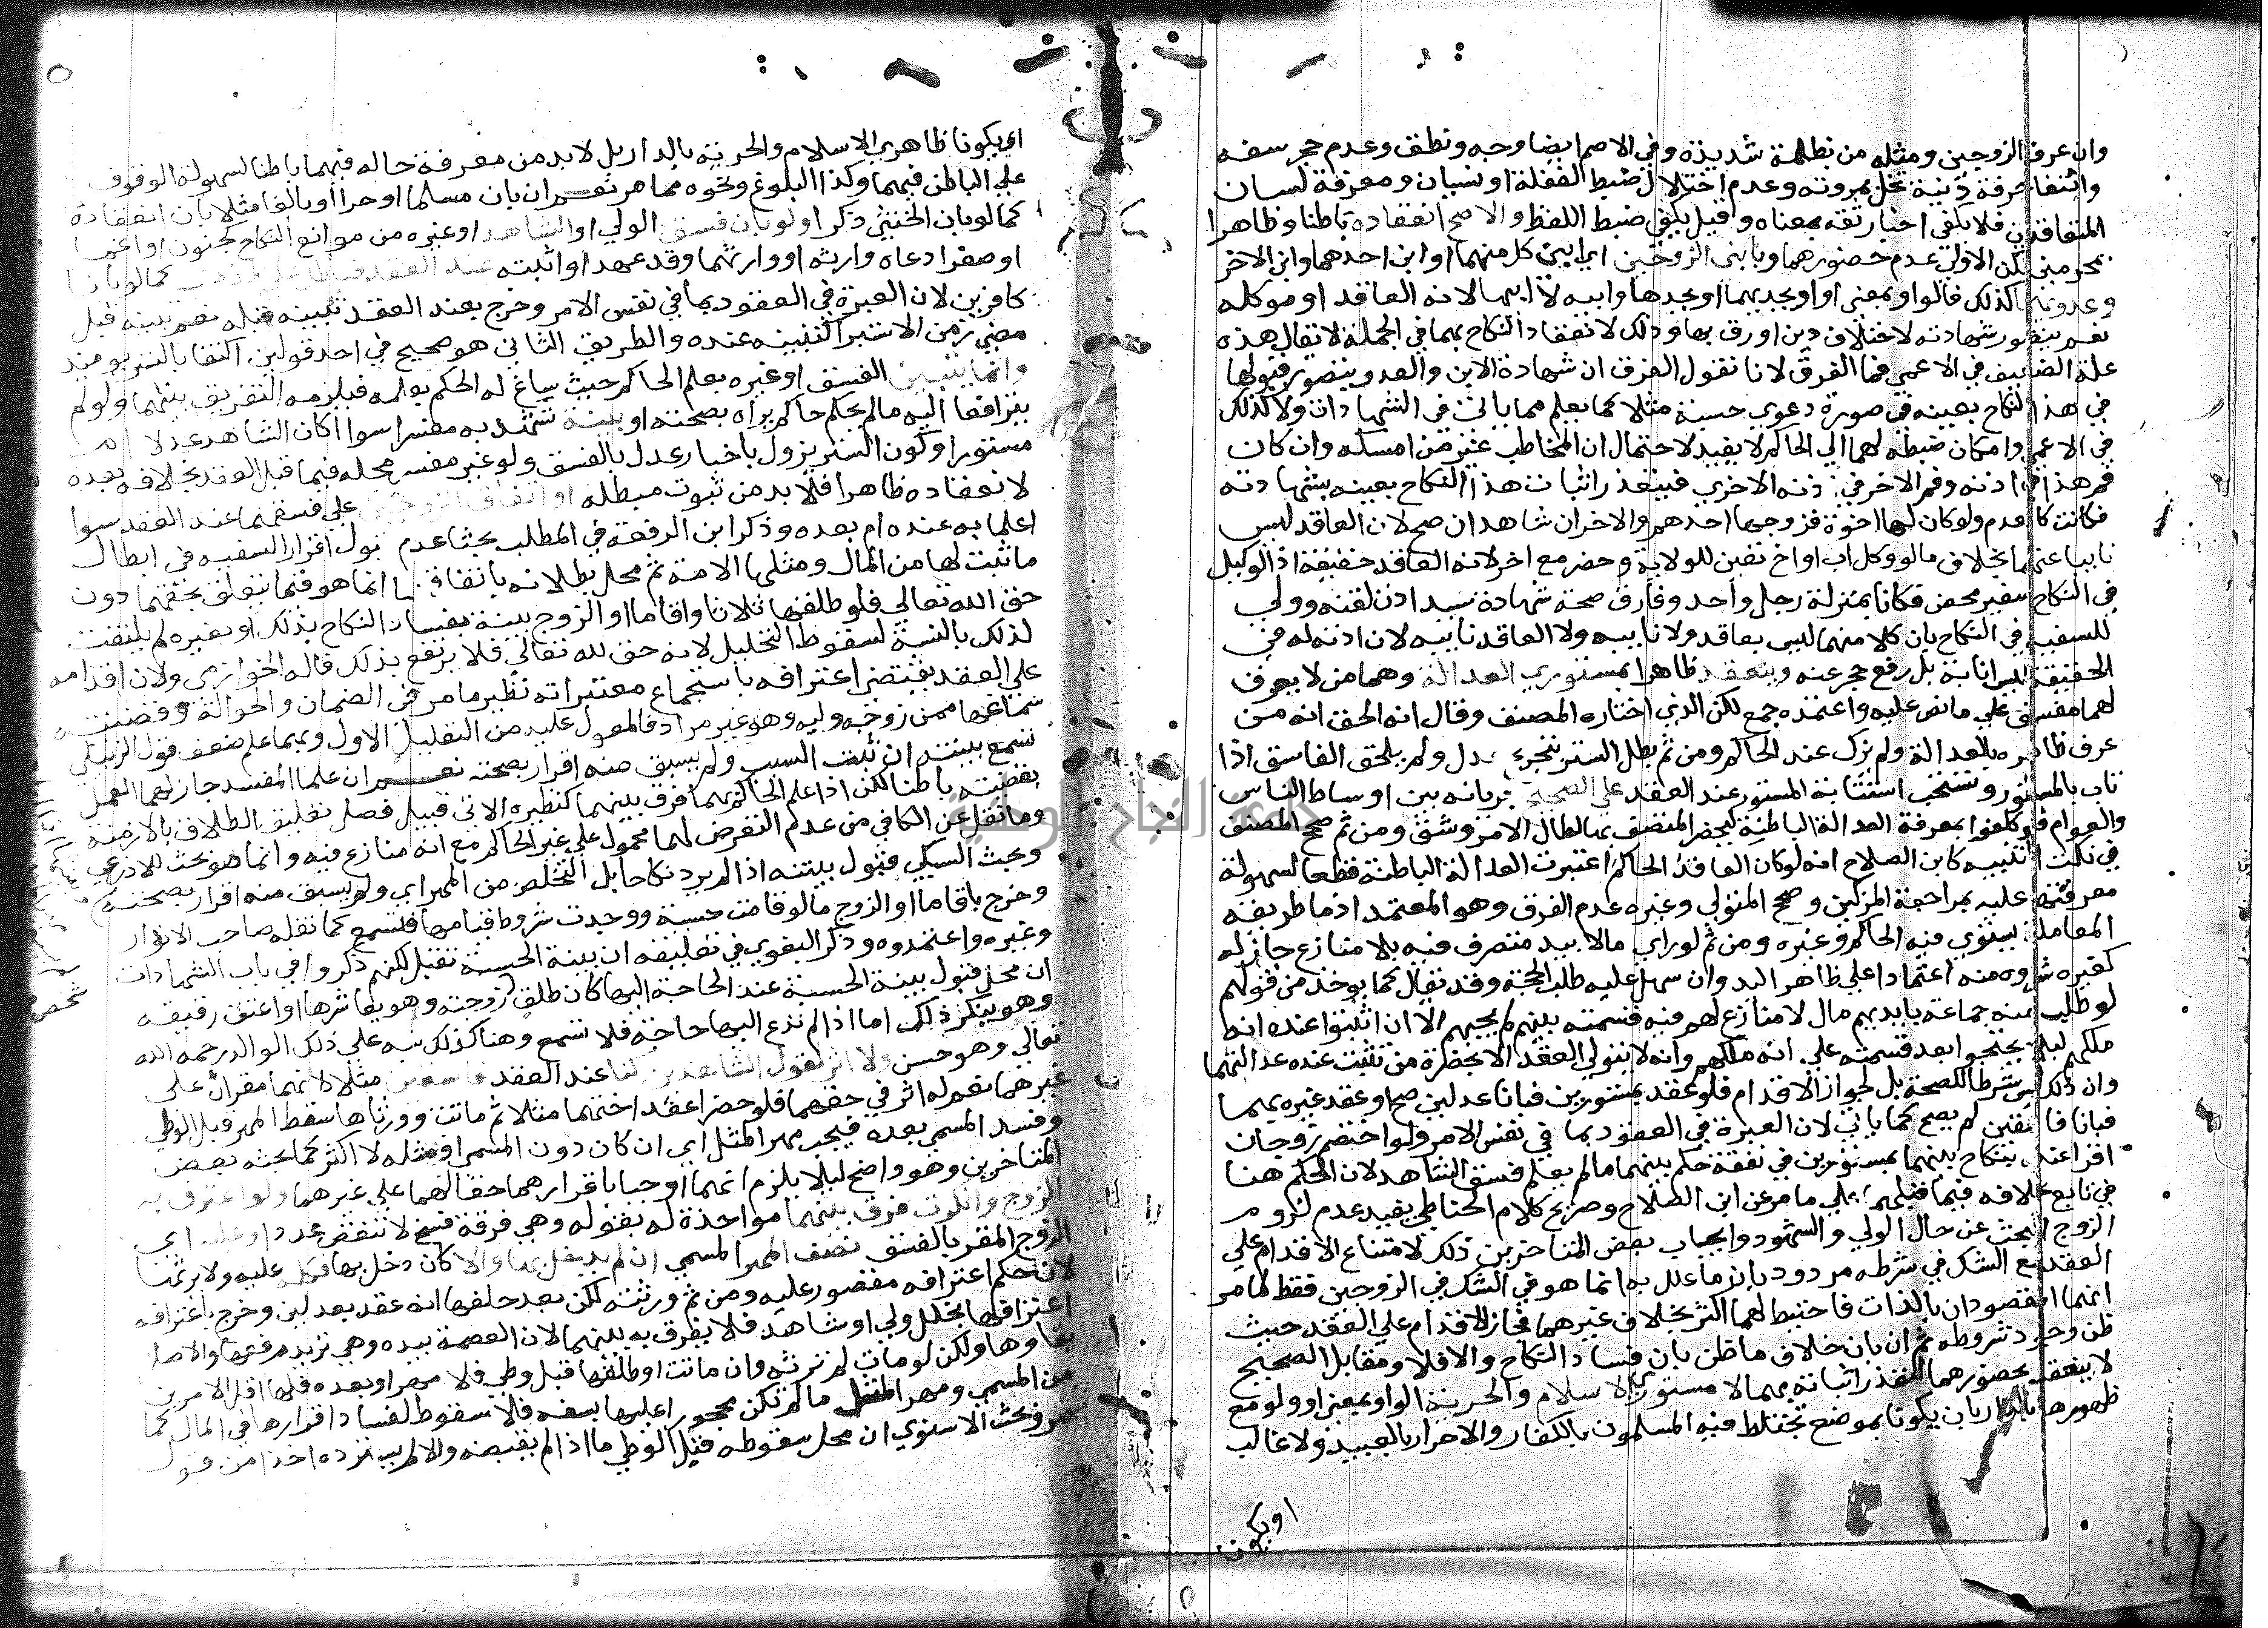 وان عرف الزوجين ومثله من بظلمة شديدة وفي الاصم ايضا وجه ونطق وعدم حجر سفه
وانتفا حرفة دنية تخل بمروته وعدم اختلال ضبط لغفلة او نسيان ومعرفة لسان
المتعاقدين فلا يكفي اخبار ثقة بمعناه وقيل يكفي ضبط اللفظ والاصح انعقاده باطنا وظاهرا
بمحرمين لكن الاولي عدم حضورهما وبابني الزوجين اي ابني كل منهما او ابن احدهما وابن الاخر
وعدويهما كذلك فالواو بمعني او او بجديهما او بجدها وابيه لا ابيها لانه العاقد او موكله
نعم يتصور شهادته لاختلاف دين او رق بها وذلك لانعقاد النكاح بهما في الجملة لا يقال هذه
علة الضعيف في الاعمي فما الفرق لانا نقول الفرق ان شهادة الابن والعدو يتصور قبولها
في هذا النكاح بعينه في صورة دعوي حسبة مثلا كما يعلم مما ياتي في الشهادات ولا كذلك
في الاعمي وامكان ضبطه لهما الي الحاكم لا يفيد لاحتمال ان المخاطب غير من امسكه وان كان
فم هذا في اذنه وفم الاخر في اذنه الاخري فيتعذر اثبات هذا النكاح بعينه بشهادته
فكانت كالعدم ولو كان لها اخوة فزوجها احدهم والاخران شاهدان صح لان العاقد ليس
نايبا عنهما بخلاف ما لو وكل اب او اخ تعين للولاية وحضر مع اخر لانه العاقد حقيقة اذ الوكيل
في النكاح سفير محض فكانا بمنزلة رجل واحد وفارق صحة شهادة سيد اذن لقنه وولي
للسفيه في النكاح بان كلا منهما ليس بعاقد ولا نايبه ولا العاقد نايبه لان اذنه له في
الحقيقة ليس انابة بل رفع حجر عنه وينعقد ظاهرا بمستوري العدالة وهما من لا يعرف
لهما مفسق علي ما نص عليه واعتمده جمع لكن الذي اختاره المصنف وقال انه الحق انه من
عرف ظاهره بالعدالة ولم يزك عند الحاكم ومن ثم بطل الستر بتجريح عدل ولم يلحق الفاسق اذا
تاب بالمستور وتستحب استتابة المستور عند العقد علي الصحيح بجريانه بين اوساط الناس
والعوام فلو كلفوا بمعرفة العدالة الباطنة ليحضر المتصف بها لطال الامر وشق ومن ثم صحح المصنف
في نكت التنبيه كابن الصلاح انه لو كان العاقد الحاكم اعتبرت العدالة الباطنة قطعا لسهولة
معرفتها عليه بمراجعة المزكين وصحح المتولي وغيره عدم الفرق وهو المعتمد اذ ما طريقه
المعاملة يستوي فيه الحاكم وغيره ومن ثم لو راي مالا بيد متصرف فيه بلا منازع جاز له
كغيره شراوه منه اعتمادا علي ظاهر اليد وان سهل عليه طلب الحجة وقد يقال كما يوخذ من قولهم
لو طلب منه جماعة بايديهم مال لا منازع لهم فيه قسمته بينهم لم يجبهم الا ان اثبتوا عنده انه
ملكهم ليلا يحتجوا بعد قسمته علي انه ملكهم وانه لا يتولي العقد الا بحضرة من تثبت عنده عدالتهما
وان ذلك ليس شرطا للصحة بل لجواز الاقدام فلو عقد بمستورين فبانا عدلين صح او عقد غيره بهما
فبانا فاسقين لم يصح كما ياتي لان العبرة في العقود بما في نفس الامر ولو اختصم زوجان
اقرا عنده بنكاح بينهما بمستورين في نفقة حكم بينهما ما لم يعلم فسق الشاهد لان الحكم هنا
في تابع بخلافه فيما قبلهما علي ما مر عن ابن الصلاح وصريح كلام الحناطي يفيد عدم لزوم
الزوج البحث عن حال الولي والشهود وايجاب بعض المتاخرين ذلك لامتناع الاقدام علي
العقد مع الشك في شرطه مردود بان ما علل به انما هو في الشك في الزوجين فقط لما مر
انهما المقصودان بالذات فاحتيط لهما اكثر بخلاف غيرهما فجاز الاقدام علي العقد حيث
ظن وجود شروطه ثم ان بان خلاف ما ظن بان فساد النكاح والا فلا ومقابل الصحيح
لا ينعقد بحضورهما لتعذر اثباته بهما لا مستوري الاسلام والحرية الواو بمعني او ولو مع
ظهورها بالدار بان يكونا بموضع تختلط فيه المسلمون بالكفار والاحرار بالعبيد ولا غالب
او يكونا
او يكونا ظاهري الاسلام والحرية بالدار بل لا بد من معرفة حاله فيهما باطنا لسهولة الوقوف
علي الباطن فيهما وكذا البلوغ ونحوه مما مر نعم ان بان مسلما او حرا او بالغا مثلا بان انعقاده
كما لو بان الخنثي ذكرا ولو بان فسق الولي او الشاهد او غيره من موانع النكاح كجنون او اغما
او صغر ادعاه وارثه او وارثهما وقد عهد او اثبته عند العقد فباطل علي المذهب كما لو بانا
كافرين لان العبرة في العقود بما في نفس الامر وخرج بعند العقد تبينه قبله نعم تبينه قبل
مضي زمن الاستبرا كتبينه عنده والطريق الثاني هو صحيح في احد قولين اكتفا بالستر يوميذ
وانما يتبين الفسق او غيره بعلم الحاكم حيث ساغ له الحكم بعلمه فيلزمه التفريق بينهما ولو لم
يترافعا اليه ما لم يحكم حاكم يراه بصحته او بينة تشهد به مفسرا سوا اكان الشاهد عدلا ام
مستورا وكون الستر يزول باخبار عدل بالفسق ولو غير مفسر محله فيما قبل العقد بخلافه بعده
لانعقاده ظاهرا فلا بد من ثبوت مبطله او اتفاق الزوجين علي فسقهما عند العقد سوا
اعلما به عنده ام بعده وذكر ابن الرفعة في المطلب بحثا عدم قبول اقرار السفيه في ابطال
ما ثبت لها من المال ومثلها الامة ثم محل بطلانه باتفاقهما انما هو فيما يتعلق بحقهما دون
حق الله تعالي فلو طلقها ثلاثا واقاما او الزوج بينة بفساد النكاح بذلك او بغيره لم يلتفت
لذلك بالنسبة لسقوط التحليل لانه حق لله تعالي فلا يرتفع بذلك قاله الخوارزمي ولان اقدامه
علي العقد يقتضي اعترافه باستجماع معتبراته نظير ما مر في الضمان والحوالة وقضيته
سماعها ممن زوجه وليه وهو غير مراد فالمعول عليه من التعليل الاول وبما علم ضعف قول الزبيلي
تسمع بينته ان بينت السبب ولم يسبق منه اقرار بصحته نعم ان علما المفسد جاز لهما العمل
بقضيته باطنا لكن اذا علم الحاكم بهما فرق بينهما كنظيره الاتي قبيل فصل تعليق الطلاق بالازمنة
وما نقل عن الكافي من عدم التعرض لهما محمول علي غير الحاكم مع انه منازع فيه وانما هو بحث للاذرعي
وبحث السبكي قبول بينته اذا لم يرد نكاحا بل التخلص من المهر اي ولم يسبق منه اقرار بصحته
وخرج باقاما او الزوج ما لو قامت حسبة ووجدت شروط قيامها فتسمع كما نقله صاحب الانوار
وغيره واعتمدوه وذكر البغوي في تعليقه ان بينة الحسبة تقبل لكنهم ذكروا في باب الشهادات
ان محل قبول بينة الحسبة عند الحاجة اليها كان طلق زوجته وهو يعاشرها او اعتق رقيقه
وهو ينكر ذلك اما اذا لم تدع اليها حاجة فلا تسمع وهنا كذلك نبه علي ذلك الوالد رحمه الله
تعالي وهو حسن ولا اثر لقول الشاهدين كنا عند العقد فاسقين مثلا لانهما مقران علي
غيرهما نعم له اثر في حقهما فلو حضرا عقد اختهما مثلا ثم ماتت وورثاها سقط المهر قبل الوطي
وفسد المسمي بعده فيجب مهر المثل اي ان كان دون المسمي او مثله لا اكثر كما بحثه بعض
المتاخرين وهو واضح ليلا يلزم انهما اوجبا باقرارهما حقا لهما علي غيرهما ولو اعترف به
الزوج وانكرت فرق بينهما مواخذة له بقوله وهي فرقة فسخ لا تنقص عددا وعليه اي
الزوج المقر بالفسق نصف المهر المسمي ان لم يدخل بها والا كان دخل بها فكله عليه ولا يرثها
لان حكم اعترافه مقصور عليه ومن ثم ورثته لكن بعد حلفها انه عقد بعدلين وخرج باعترافه
اعترافها بخلل ولي او شاهد فلا يفرق به بينهما لان العصمة بيده وهي تريد رفعها والاصل
بقاوها ولكن لو مات لم ترثه وان ماتت او طلقها قبل وطي فلا مهر او بعده فلها اقل الامرين
من المسمي ومهر المثل ما لم تكن محجورا عليها بسفه فلا سقوط لفساد اقرارها في المال كما
مر وبحث الاسنوي ان محل سقوطه قبل الوطي ما اذا لم يقبضه والا لم يسترده اخذا من قول